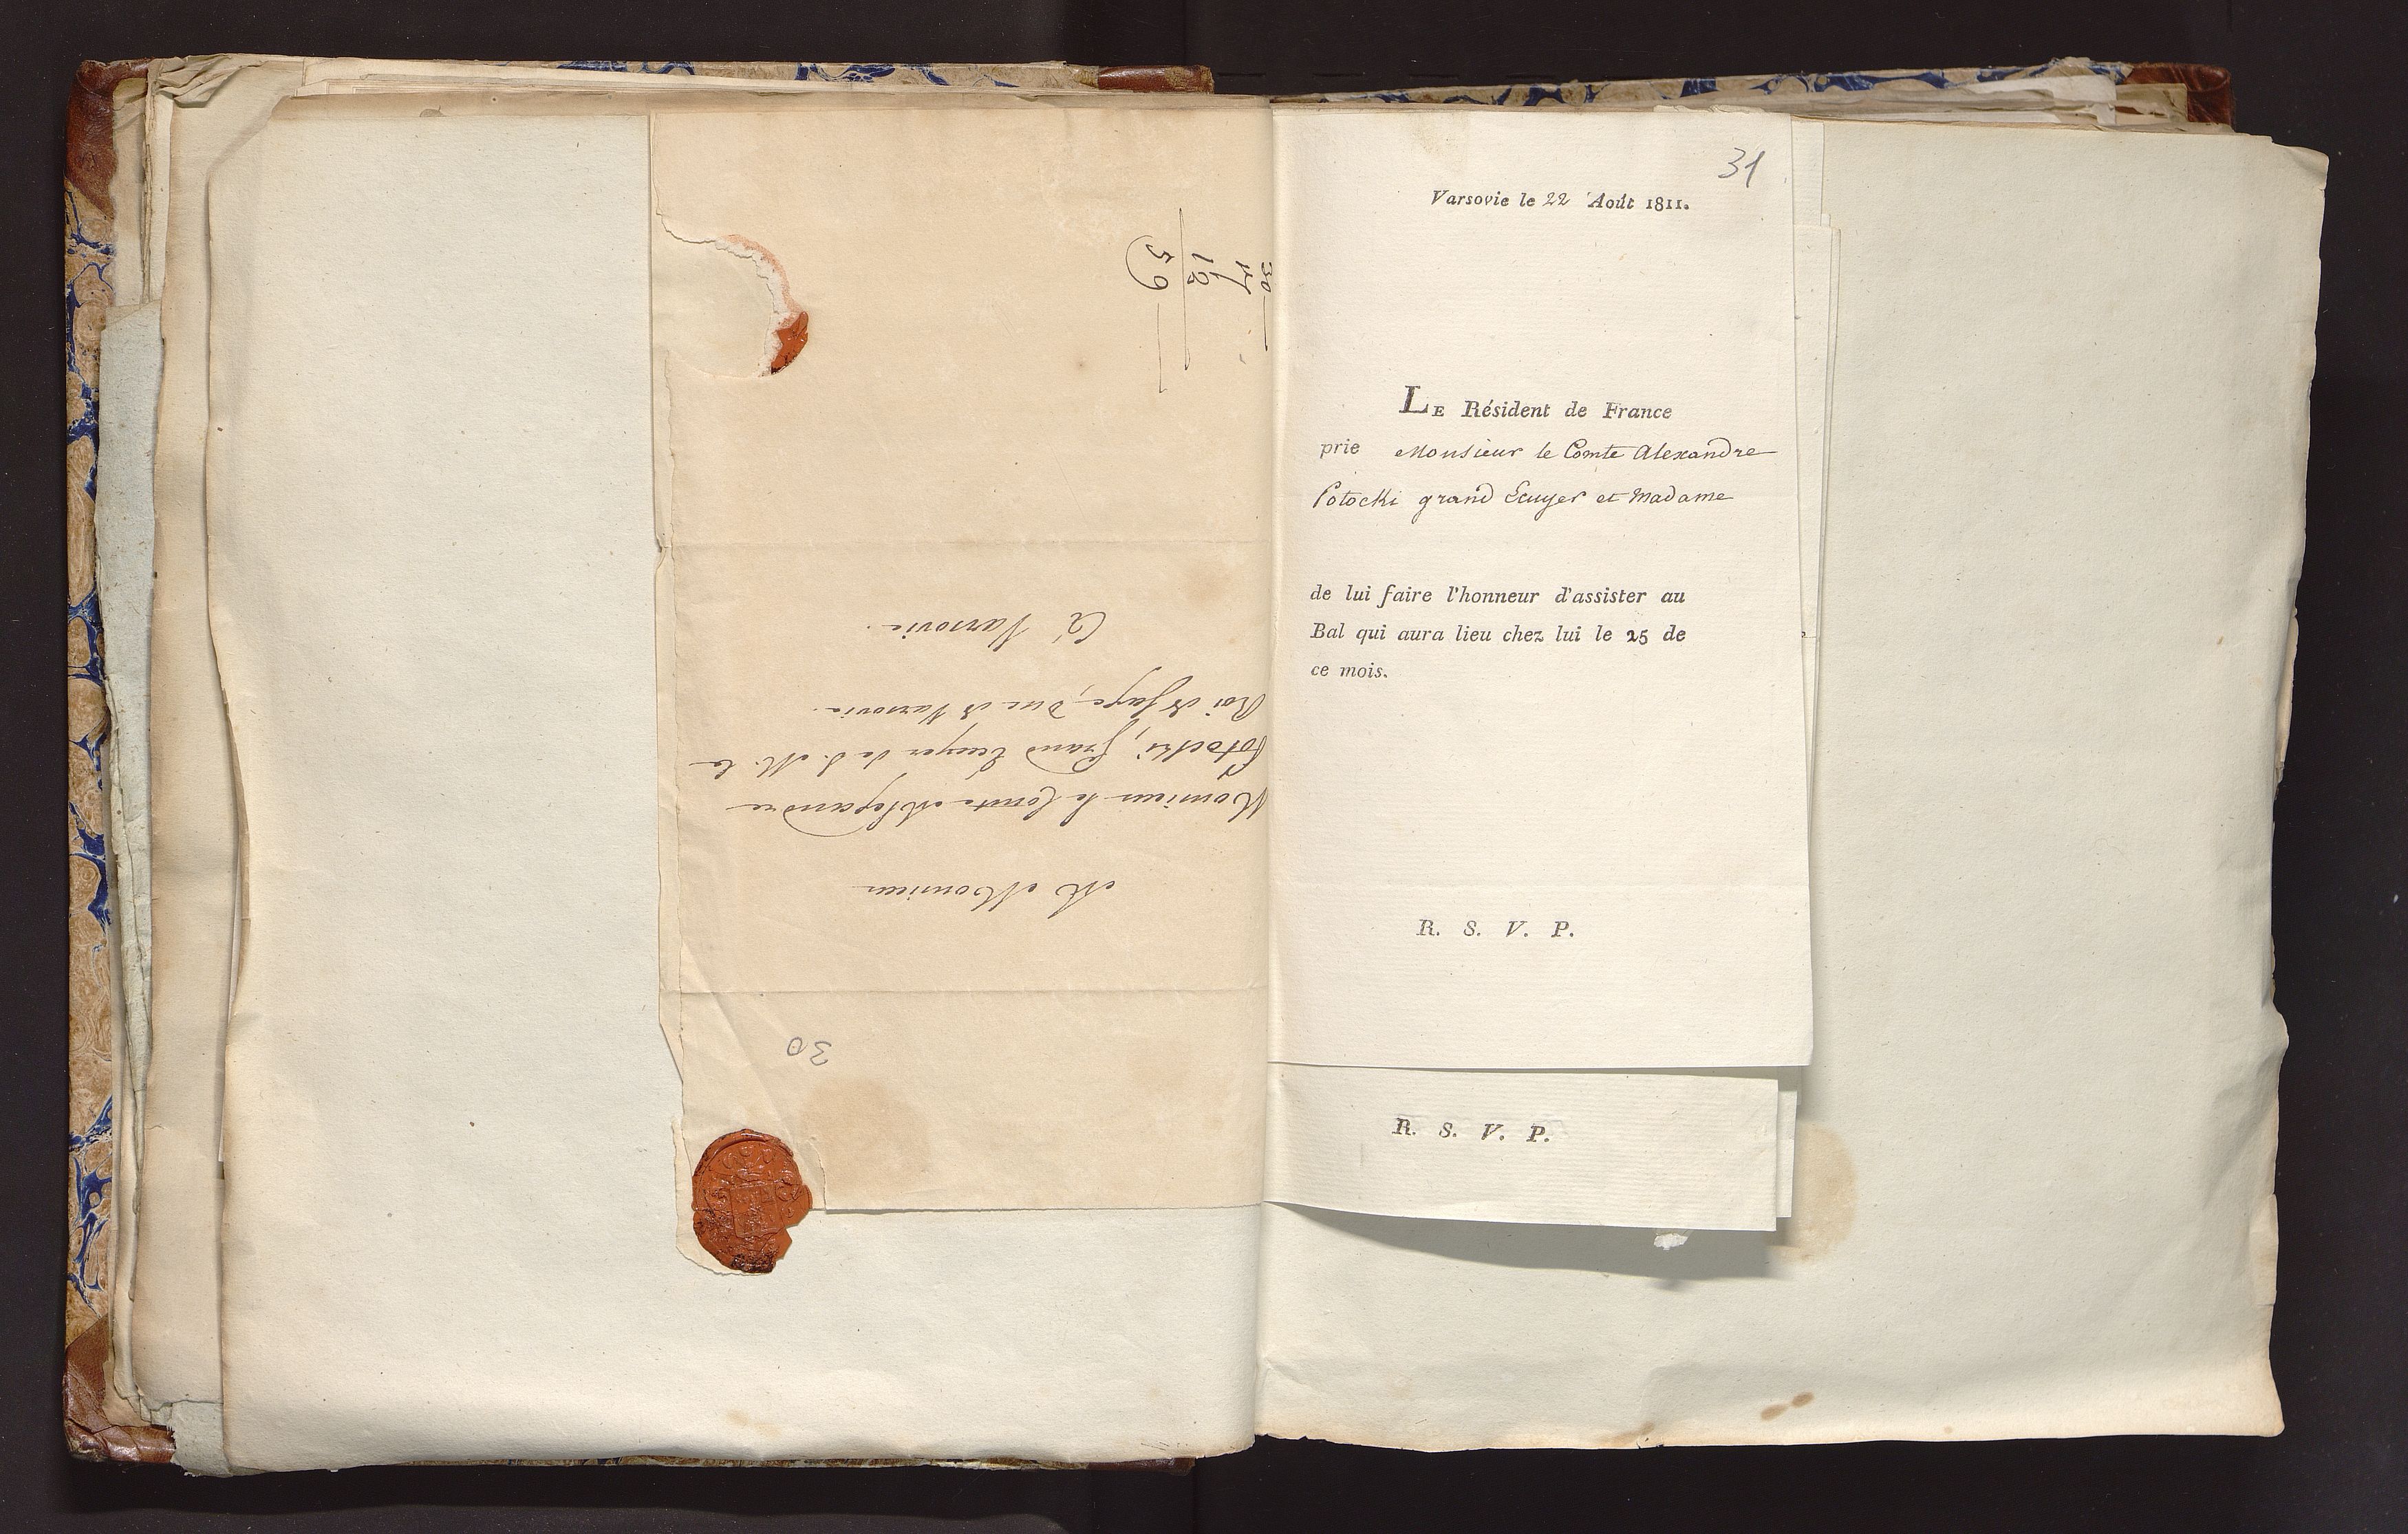 30
17
12
59
A Monsieur
Monsieur le Comte Alexandre
Potocki, grand Ecuyer de S. M. le
Roi de Saxe, Duc de Varsovie.
à Varsovie.
30
31
Varsovie le 22 Août 1811.
LE Résident de France
prie Monsieur le Comte Alexandre
Potocki grand Ecuyer et Madame
de lui faire l'honneur d'assister au
Bal qui aura lieu chez lui le 25 de
ce mois.
R. S. V. P.
R. S. V. P.